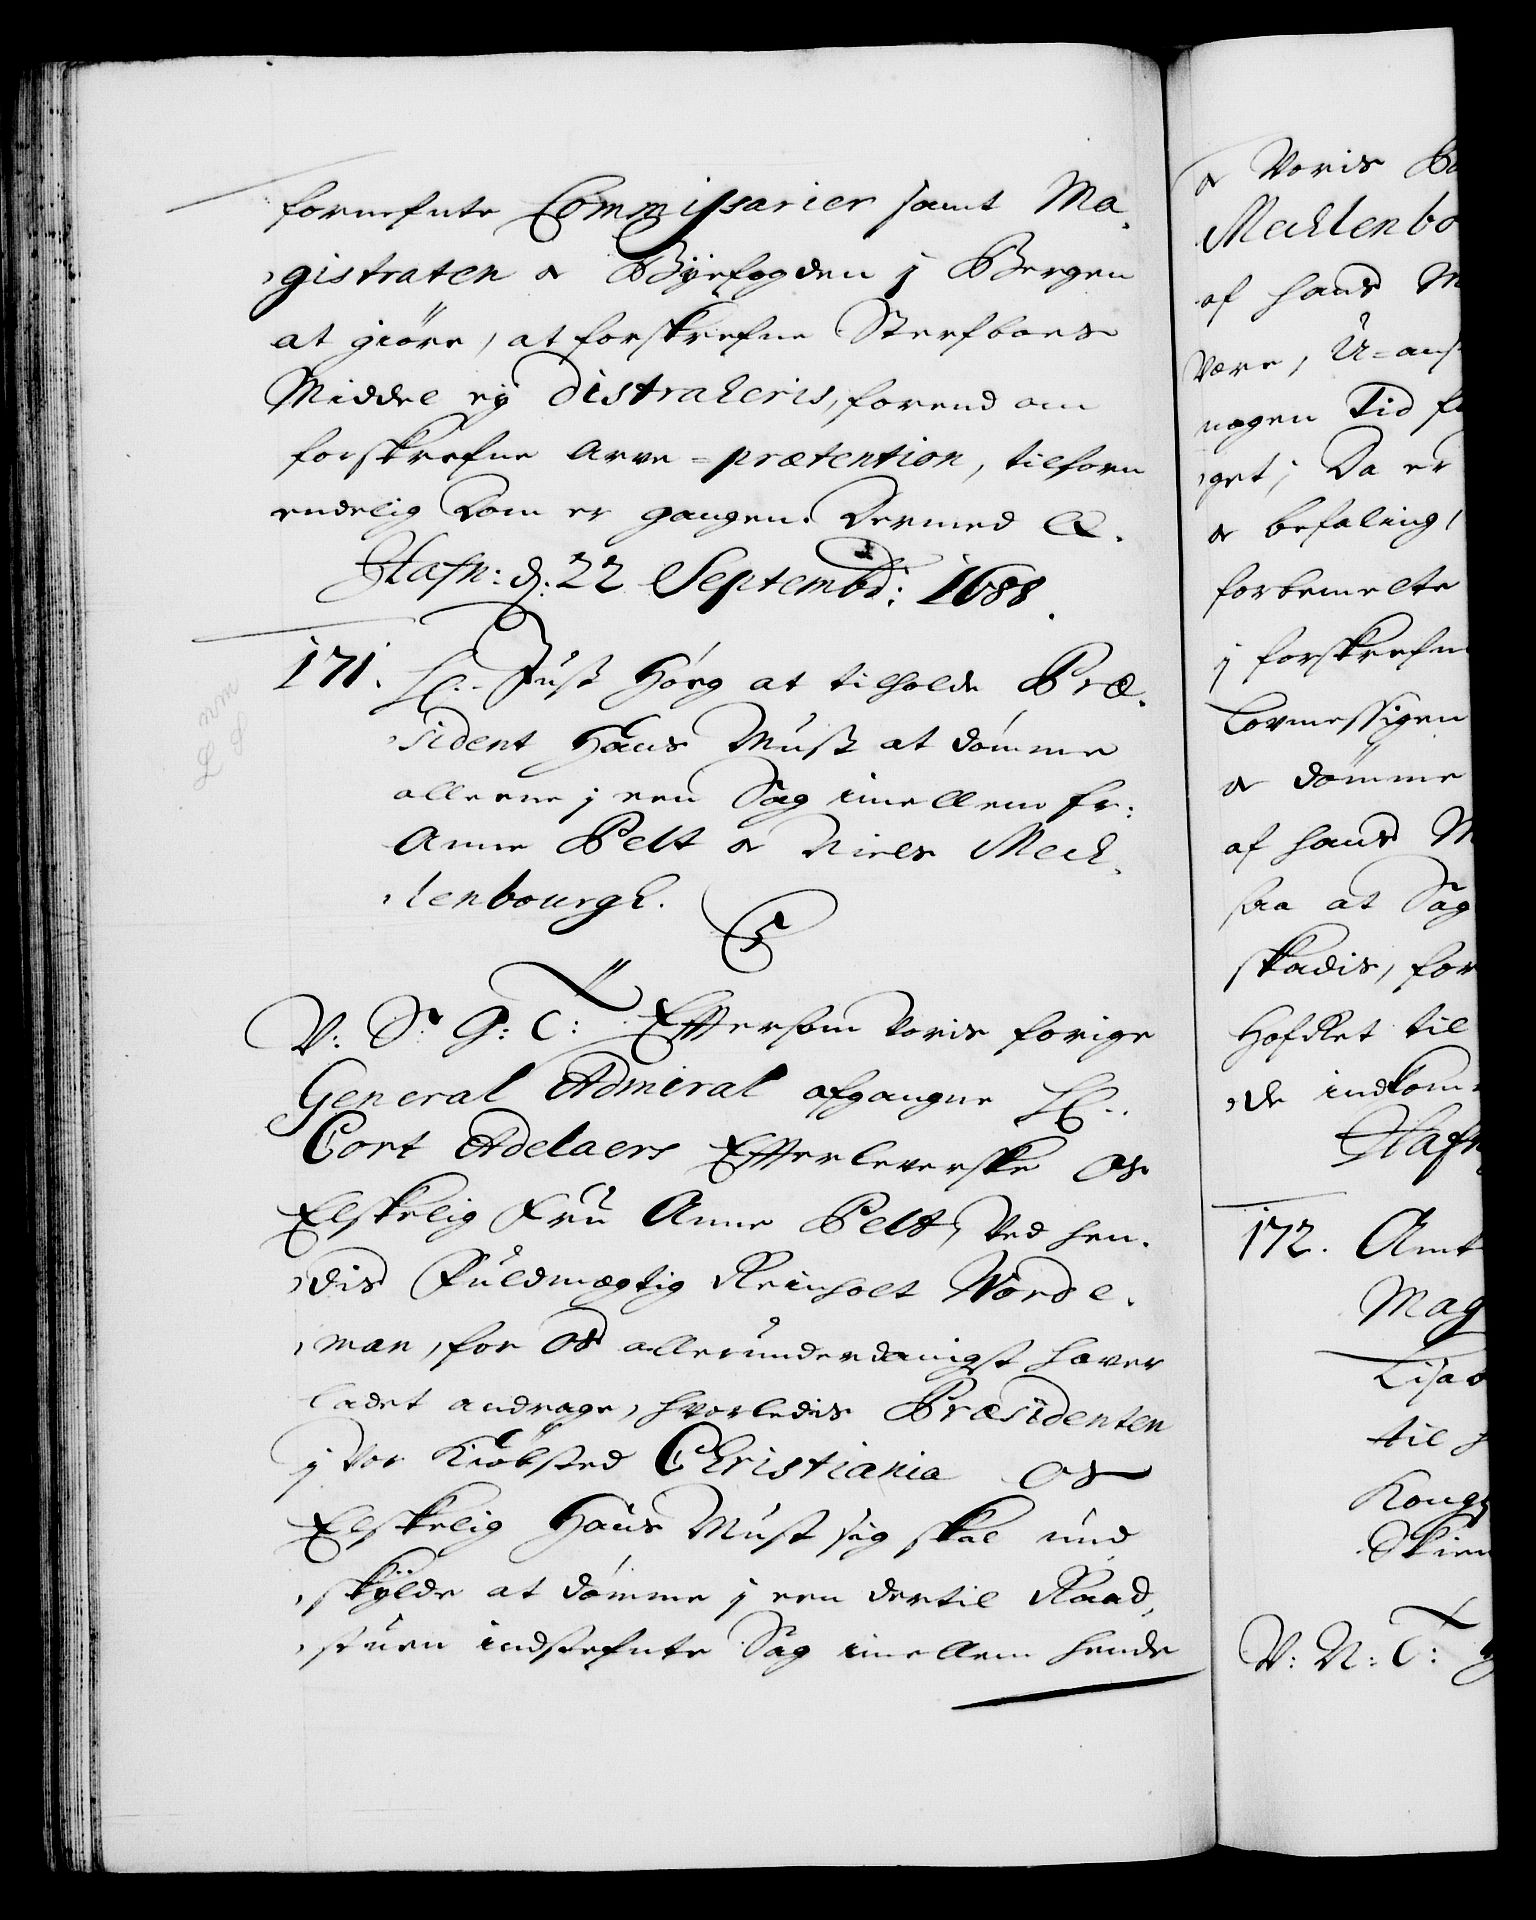 fornefnte Commissarier samt Ma-
gistraten & Byefogden j Bergen
at giöre, at forskrefne Sterfboes
Middel ey distraheris, forend om
forskrefne Arve=prætention, tilforn
endelig Dom er gangen. Dermed &.
Hafn: d: 22 Septembr: 1688.
171. H: Just Höeg at tilholde Præ-
sident Hans Must at dömme
alleene j een Sag imellem fr:
Anne Pelt & Niels Meck-
lenbourgh.
V: S. G: T: Eftersom Voris forige
General Admiral afgangne H:
Cort Adelaers Efterleverske Os
Elskelig Fru Anne Pelt, Ved hen-
dis Fuldmægtig Reinholt Worde-
man, for Os allerunderdanigst haver
ladet andrage, hvorledis Præsidenten
j Vor Kiöbsted Christiania Os
Elskelig Hans Must sig skal und
skylde at dömme j een dertil Raad-
stuen indstefnte Sag imellem hende
& Voris
Mecklenbo
af hans M
Være, U=ans
nogen Tid
get; Da er
& befaling,
forbemelte
j forskrefn
Lovmessigen
& dömme
af hans M
saa at Sag
skadis, for
HofRet til
de indkom
Hafn
172. Amt
Mag
Lisab
til
Kong
Skien
V: N: T: